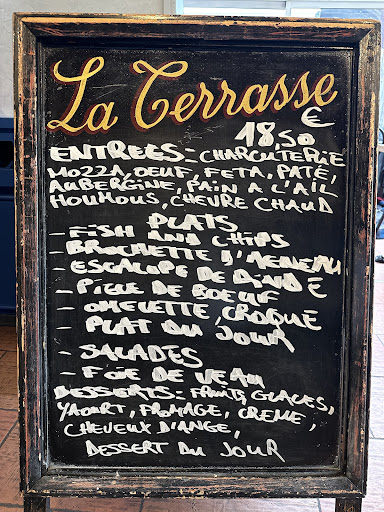 La Terrasse
18,50 €
ENTREES: CHARCUTERIE
MOZZA, OEUF, FETA, PATÉ,
AUBERGINE, PAIN A L'AIL
HOUMOUS, CHEVRE CHAUD
PLATS
- FISH AND CHIPS
- BROCHETTE D'AGNEAU
- ESCALOPE DE DINDE
- PIECE DE BOEUF
- OMELETTE, CROQUE
- PLAT DU JOUR
- SALADES
- FOIE DE VEAU
DESSERTS: FRUITS, GLACES,
YAOURT, FROMAGE, CREME,
CHEVEUX D'ANGE,
DESSERT DU JOUR